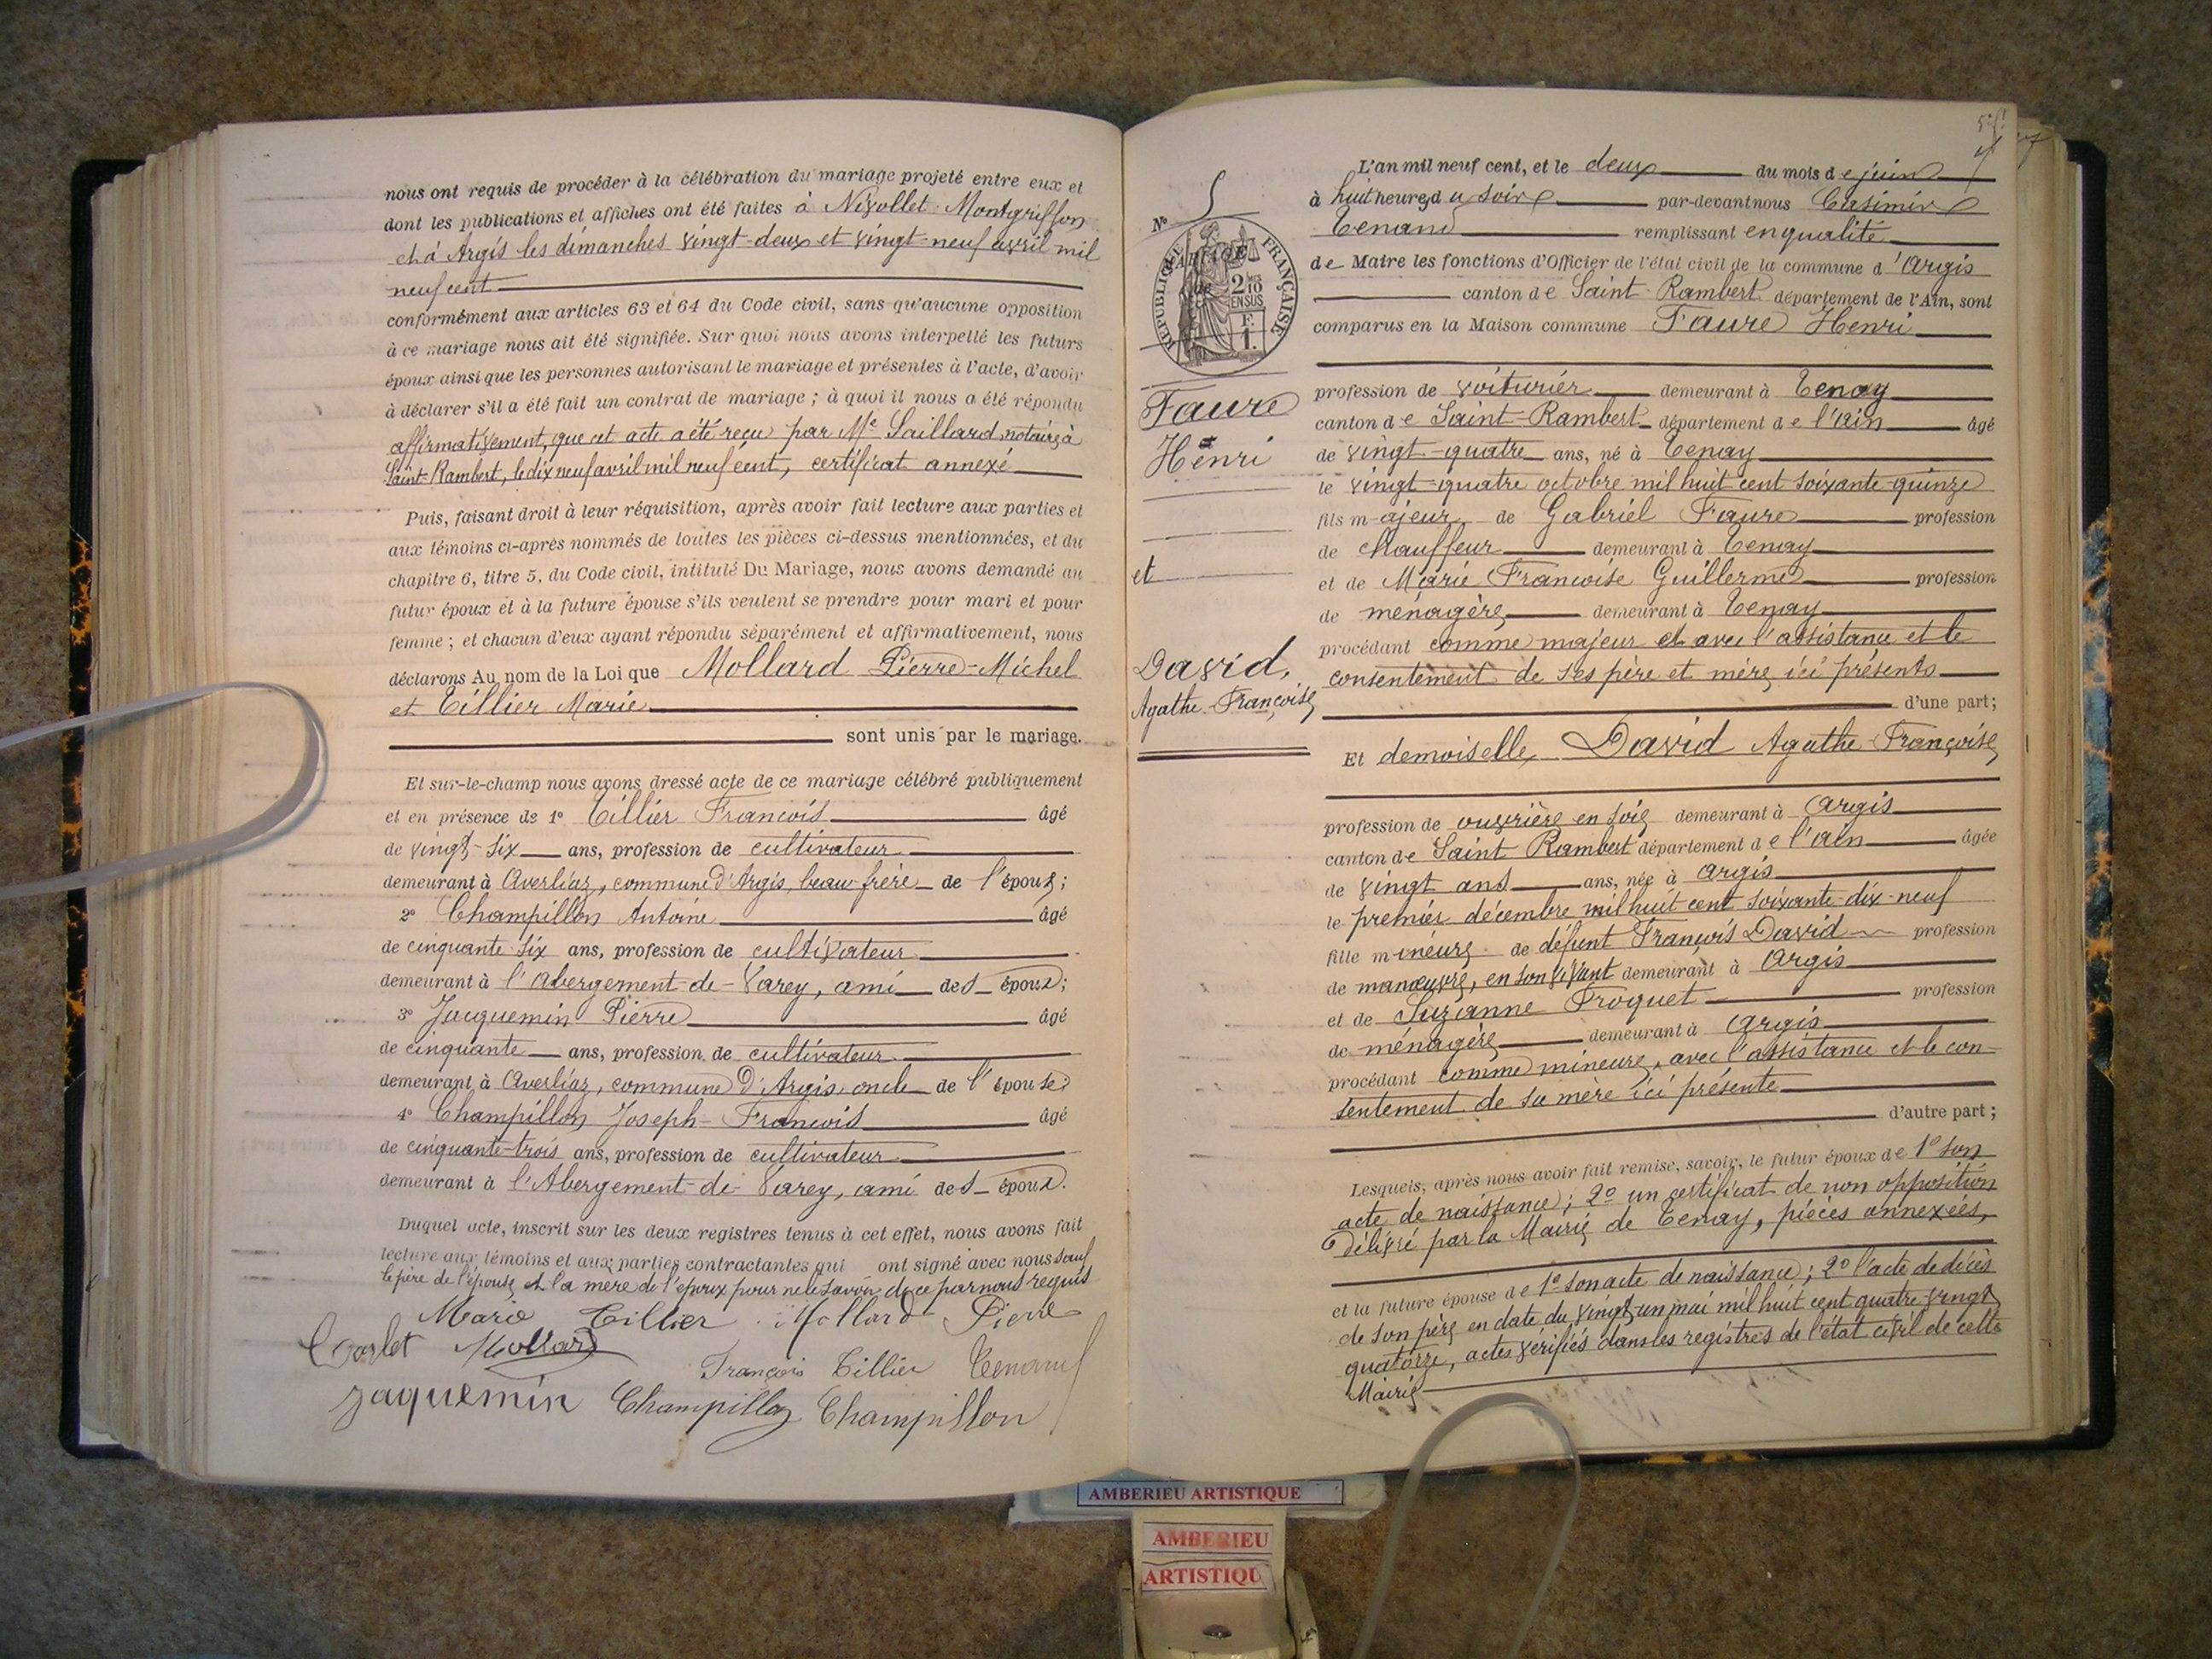 nous ont requis de procéder à la célébration du mariage projeté entre eux et
dont les publications et affiches ont été faites à Nivollet-Montgriffon
et à Argis les dimanches vingt-deux et vingt-neuf avril mil
neuf cent
conformément aux articles 63 et 64 du Code civil, sans qu'aucune opposition
à ce mariage nous ait été signifiée. Sur quoi nous avons interpellé les futurs
époux ainsi que les personnes autorisant le mariage et présentes à l'acte, d'avoir
à déclarer s'il a été fait un contrat de mariage ; à quoi il nous a été répondu
affirmativement, que cet acte a été reçu par Me Saillard notaire à
Saint-Rambert, le dix neuf avril mil neuf cent, certificat annexé
Puis, faisant droit à leur réquisition, après avoir fait lecture aux parties et
aux témoins ci-après nommés de toutes les pièces ci-dessus mentionnées, et du
chapitre 6, titre 5, du Code civil, intitulé Du Mariage, nous avons demandé au
futur époux et à la future épouse s'ils veulent se prendre pour mari et pour
femme ; et chacun d'eux ayant répondu séparément et affirmativement, nous
déclarons Au nom de la Loi que Mollard Pierre-Michel
et Tillier Marie
sont unis par le mariage.
Et sur-le-champ nous avons dressé acte de ce mariage célébré publiquement
et en présence de 1° Tillier François âgé
de vingt-six ans, profession de cultivateur
demeurant à Averliaz, commune d'Argis, beau frère de l'épouse ;
2° Champillon Antoine âgé
de cinquante six ans, profession de cultivateur
demeurant à l'Abergement-de-Varey, ami des époux ;
3° Jacquemin Pierre âgé
de cinquante ans, profession de cultivateur
demeurant à Averliaz, commune d'Argis, oncle de l'épouse ;
4° Champillon Joseph-François âgé
de cinquante-trois ans, profession de cultivateur
demeurant à l'Abergement-de-Varey, ami des époux.
Duquel acte, inscrit sur les deux registres tenus à cet effet, nous avons fait
lecture aux témoins et aux parties contractantes qui ont signé avec nous sauf
le père de l'épouse et la mère de l'époux pour ne le savoir de ce par nous requis
Marie Tillier Mollard Pierre
Mollard
François Tillier Tenand
Jaquemin Champillon Champillon
L'an mil neuf cent, et le deux du mois de juin
à huit heures du soir par-devant nous Casimir
Tenand remplissant en qualité
de Maire les fonctions d'Officier de l'état civil de la commune d'Argis
canton de Saint-Rambert département de l'Ain, sont
comparus en la Maison commune Faure Henri
profession de voiturier demeurant à Tenay
canton de Saint-Rambert département de l'ain âgé
de vingt-quatre ans, né à Tenay
le vingt-quatre octobre mil huit cent soixante-quinze
fils majeur de Gabriel Faure profession
de chauffeur demeurant à Tenay
et de Marie Françoise Guillerme profession
de ménagère demeurant à Tenay
procédant comme majeur et avec l'assistance et le
consentement de ses père et mère ici présents
d'une part ;
Et demoiselle David Agathe-Françoise
profession de ouvrière en soie demeurant à Argis
canton de Saint Rambert département de l'ain âgée
de vingt ans ans, née à Argis
le premier décembre mil huit cent soixante-dix-neuf
fille mineure de défunt François David profession
de manœuvre, en son vivant demeurant à Argis
et de Suzanne Froquet profession
de ménagère demeurant à Argis
procédant comme mineure, avec l'assistance et le con-
sentement de sa mère ici présente
d'autre part ;
Lesquels, après nous avoir fait remise, savoir, le futur époux de 1° son
acte de naissance ; 2° un certificat de non opposition
délivré par la Mairie de Tenay, pièces annexées,
et la future épouse de 1° son acte de naissance ; 2° l'acte de décès
de son père en date du vingt-un mai mil huit cent quatre-vingt
quatorze, actes vérifiés dans les registres de l'état civil de cette
Mairie
N° 5
RÉPUBLIQUE FRANÇAISE
2/10 EN SUS
F. 1.
Faure
Henri
et
David,
Agathe-Françoise
AMBERIEU ARTISTIQUE
AMBERIEU
ARTISTIQU